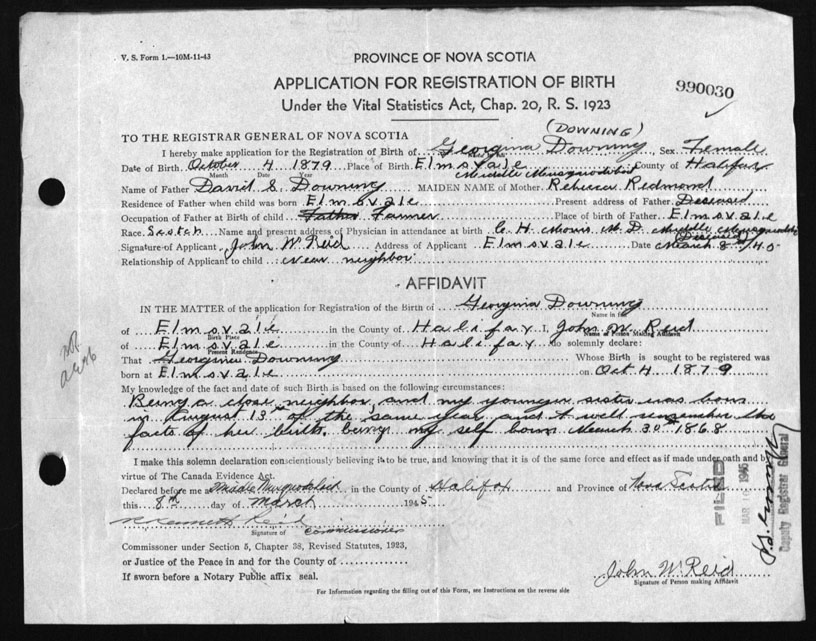 V. S. Form 1.—10M-11-43
PROVINCE OF NOVA SCOTIA
APPLICATION FOR REGISTRATION OF BIRTH
990030
Under the Vital Statistics Act, Chap. 20, R. S. 1923
(DOWNING)
TO THE REGISTRAR GENERAL OF NOVA SCOTIA
I hereby make application for the Registration of Birth of Georgina Downing, Sex Female
Date of Birth October 4 1879 Place of Birth Elmsvale County of Halifax
Month Date Year Middle Musquodoboit
Name of Father David S. Downing MAIDEN NAME of Mother Rebecca Redmond
Residence of Father when child was born Elmsvale Present address of Father Deceased
Occupation of Father at Birth of child Father Farmer Place of birth of Father Elmsvale
Race Scotch Name and present address of Physician in attendance at birth C. H. Morris M. D. Middle Musquodoboit
(Deceased)
Signature of Applicant John W Reid Address of Applicant Elmsvale Date March 8th/45
Relationship of Applicant to child Near neighbor
AFFIDAVIT
IN THE MATTER of the application for Registration of the Birth of Georgina Downing
Name in full
of Elmsvale in the County of Halifax I, John W. Reid
Birth Place Name of Person Making Affidavit
of Elmsvale in the County of Halifax do solemnly declare:
Present Residence
That Georgina Downing Whose Birth is sought to be registered was
born at Elmsvale on Oct 4 1879
My knowledge of the fact and date of such Birth is based on the following circumstances:
Being a close neighbor and my younger sister was born
in August 13th of the same year and I well remember the
facts of her birth, being my self born March 30th 1868
I make this solemn declaration conscientiously believing it to be true, and knowing that it is of the same force and effect as if made under oath and by
virtue of The Canada Evidence Act.
Declared before me at Middle Musquodoboit in the County of Halifax and Province of Nova Scotia
this 8th day of March 1945
Kenneth Reid
Signature of Commissioner
Commissioner under Section 5, Chapter 38, Revised Statutes, 1923,
or Justice of the Peace in and for County of
If sworn before a Notary Public affix seal.
John W. Reid
Signature of Person making Affidavit
For Information regarding the filling out of this Form, see Instructions on the reverse side
FILED
MAR 16 1945
Deputy Registrar General